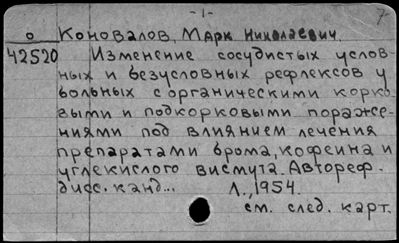 -1-
7-
о Коновалов, Марк Николаевич.
42520 Изменение сосудистых услов-
ных и безусловных рефлексов у
больных с органическими корко-
выми и подкорковыми пораже-
ниями под влиянием лечения
препаратами брома, кофеина и
углекислого висмута. Автореф.
дисс. канд... Л., 1954.
см. след. карт.